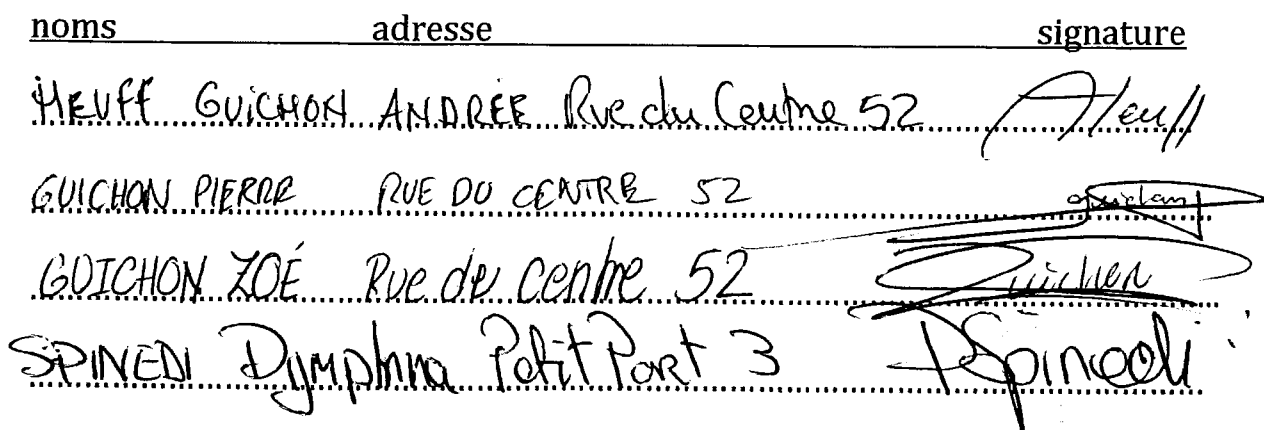 noms adresse signature
HEUFF GUICHON ANDRÉE Rue du Centre 52 AHeuff
GUICHON PIERRE RUE DU CENTRE 52 Guichon
GUICHON ZOÉ Rue du Centre 52 Guichon
SPINEDI Dymphna Petit Port 3 DSpinedi